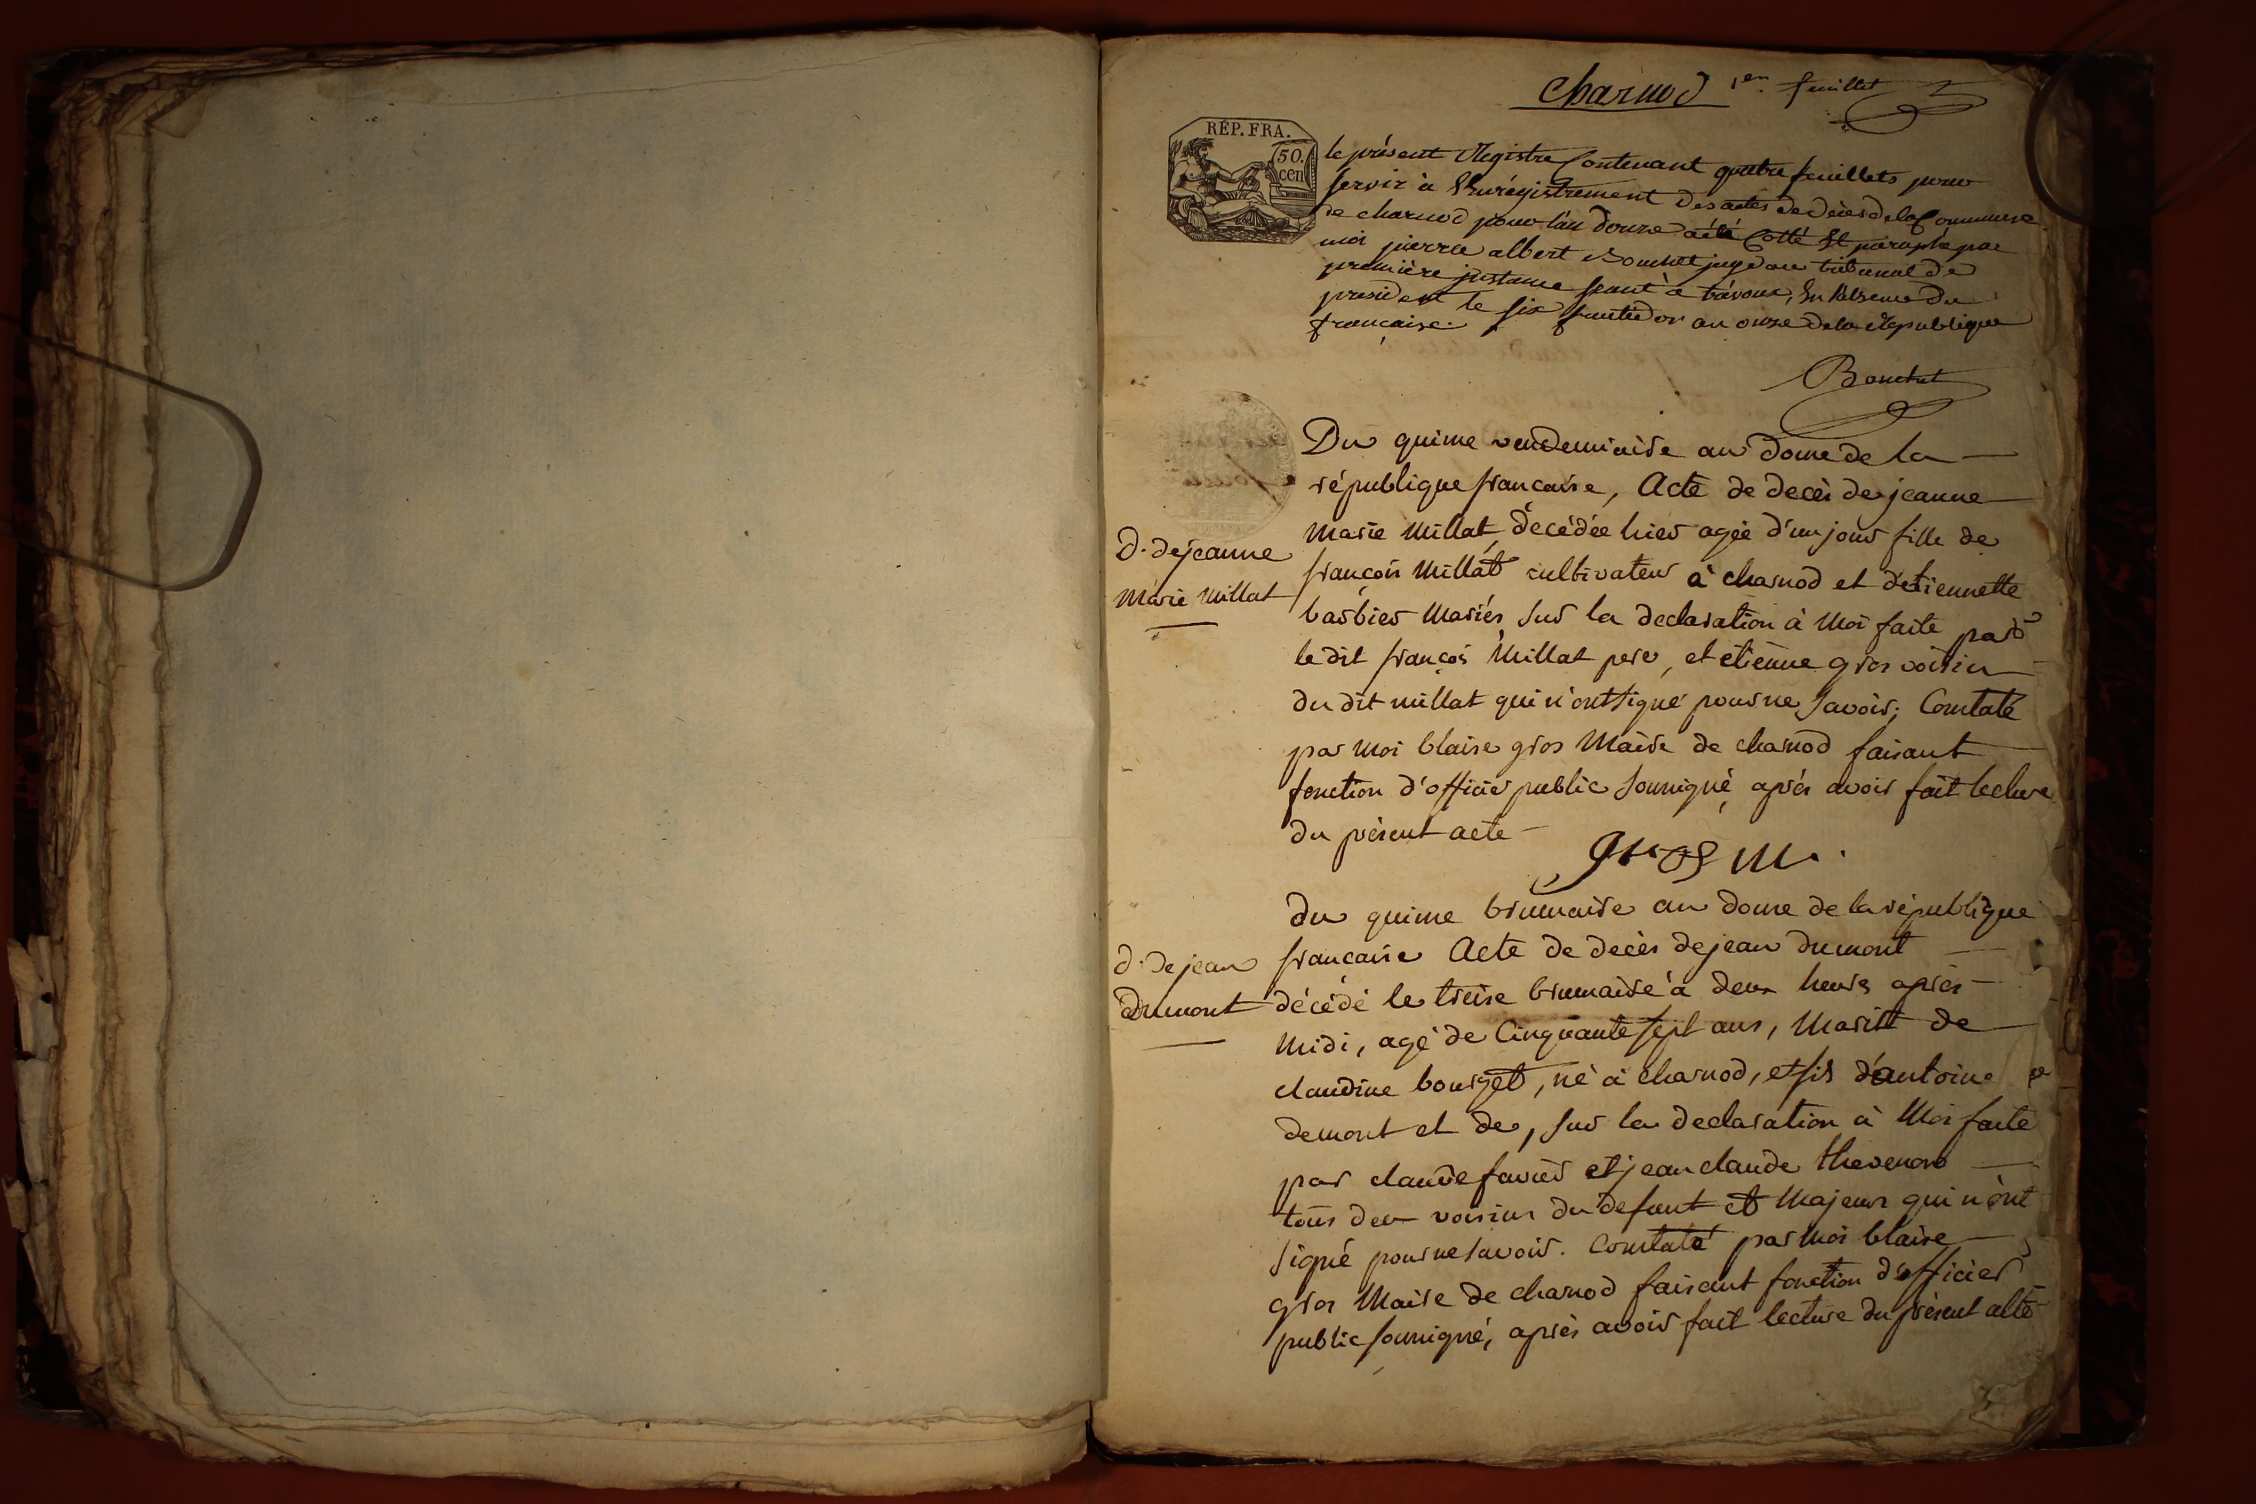 Charnod 1er. feuillet
RÉP. FRA.
50.
cen
le présent Registre Contenant quatre feuillets pour
servir à l'Enrégistrement des actes de décès de la Commune
de charnod pour l'an douze a été Cotté Et paraphé par
moi pierre albert Bouchet juge au tribunal de
première instance séant à trévoux, En l'absence du
président le six fructidor an onze de la République
française.
Bouchet
Du quinze vendemiaire an douze de la
république francaise, Acte de decès de jeanne
Marie Millat, decédée hier agée d'un jour fille de
françois Millat cultivateur à charnod et detiennette
barbier Mariés, sur la declaration à Moi faite par
le dit françois Millat pere, et etienne gros voisin
du dit millat qui n'ont signé pour ne savoir; Constaté
par Moi blaise gros Maire de charnod faisant
fonction d'officier public soussigné, après avoir fait lecture
du présent acte
D. de jeanne
Marie Millat
gros m.
du quinze brumaire an douze de la république
francaise Acte de decès de jean dumont
décédé le treize brumaire à deux heures après
Midi, agé de Cinquante sept ans, Marit de
claudine bourget, né à charnod, et fils d'antoine
demont et de, sur la declaration à Moi faite
par claude favier et jean claude thevenon
tous deux voisins du defunt et Majeurs qui n'ont
signé pour ne savoir. Constaté par Moi blaise
gros Maire de charnod faisant fonction d'officier
public soussigné, après avoir fait lecture du présent acte
d. de jean
Dumont